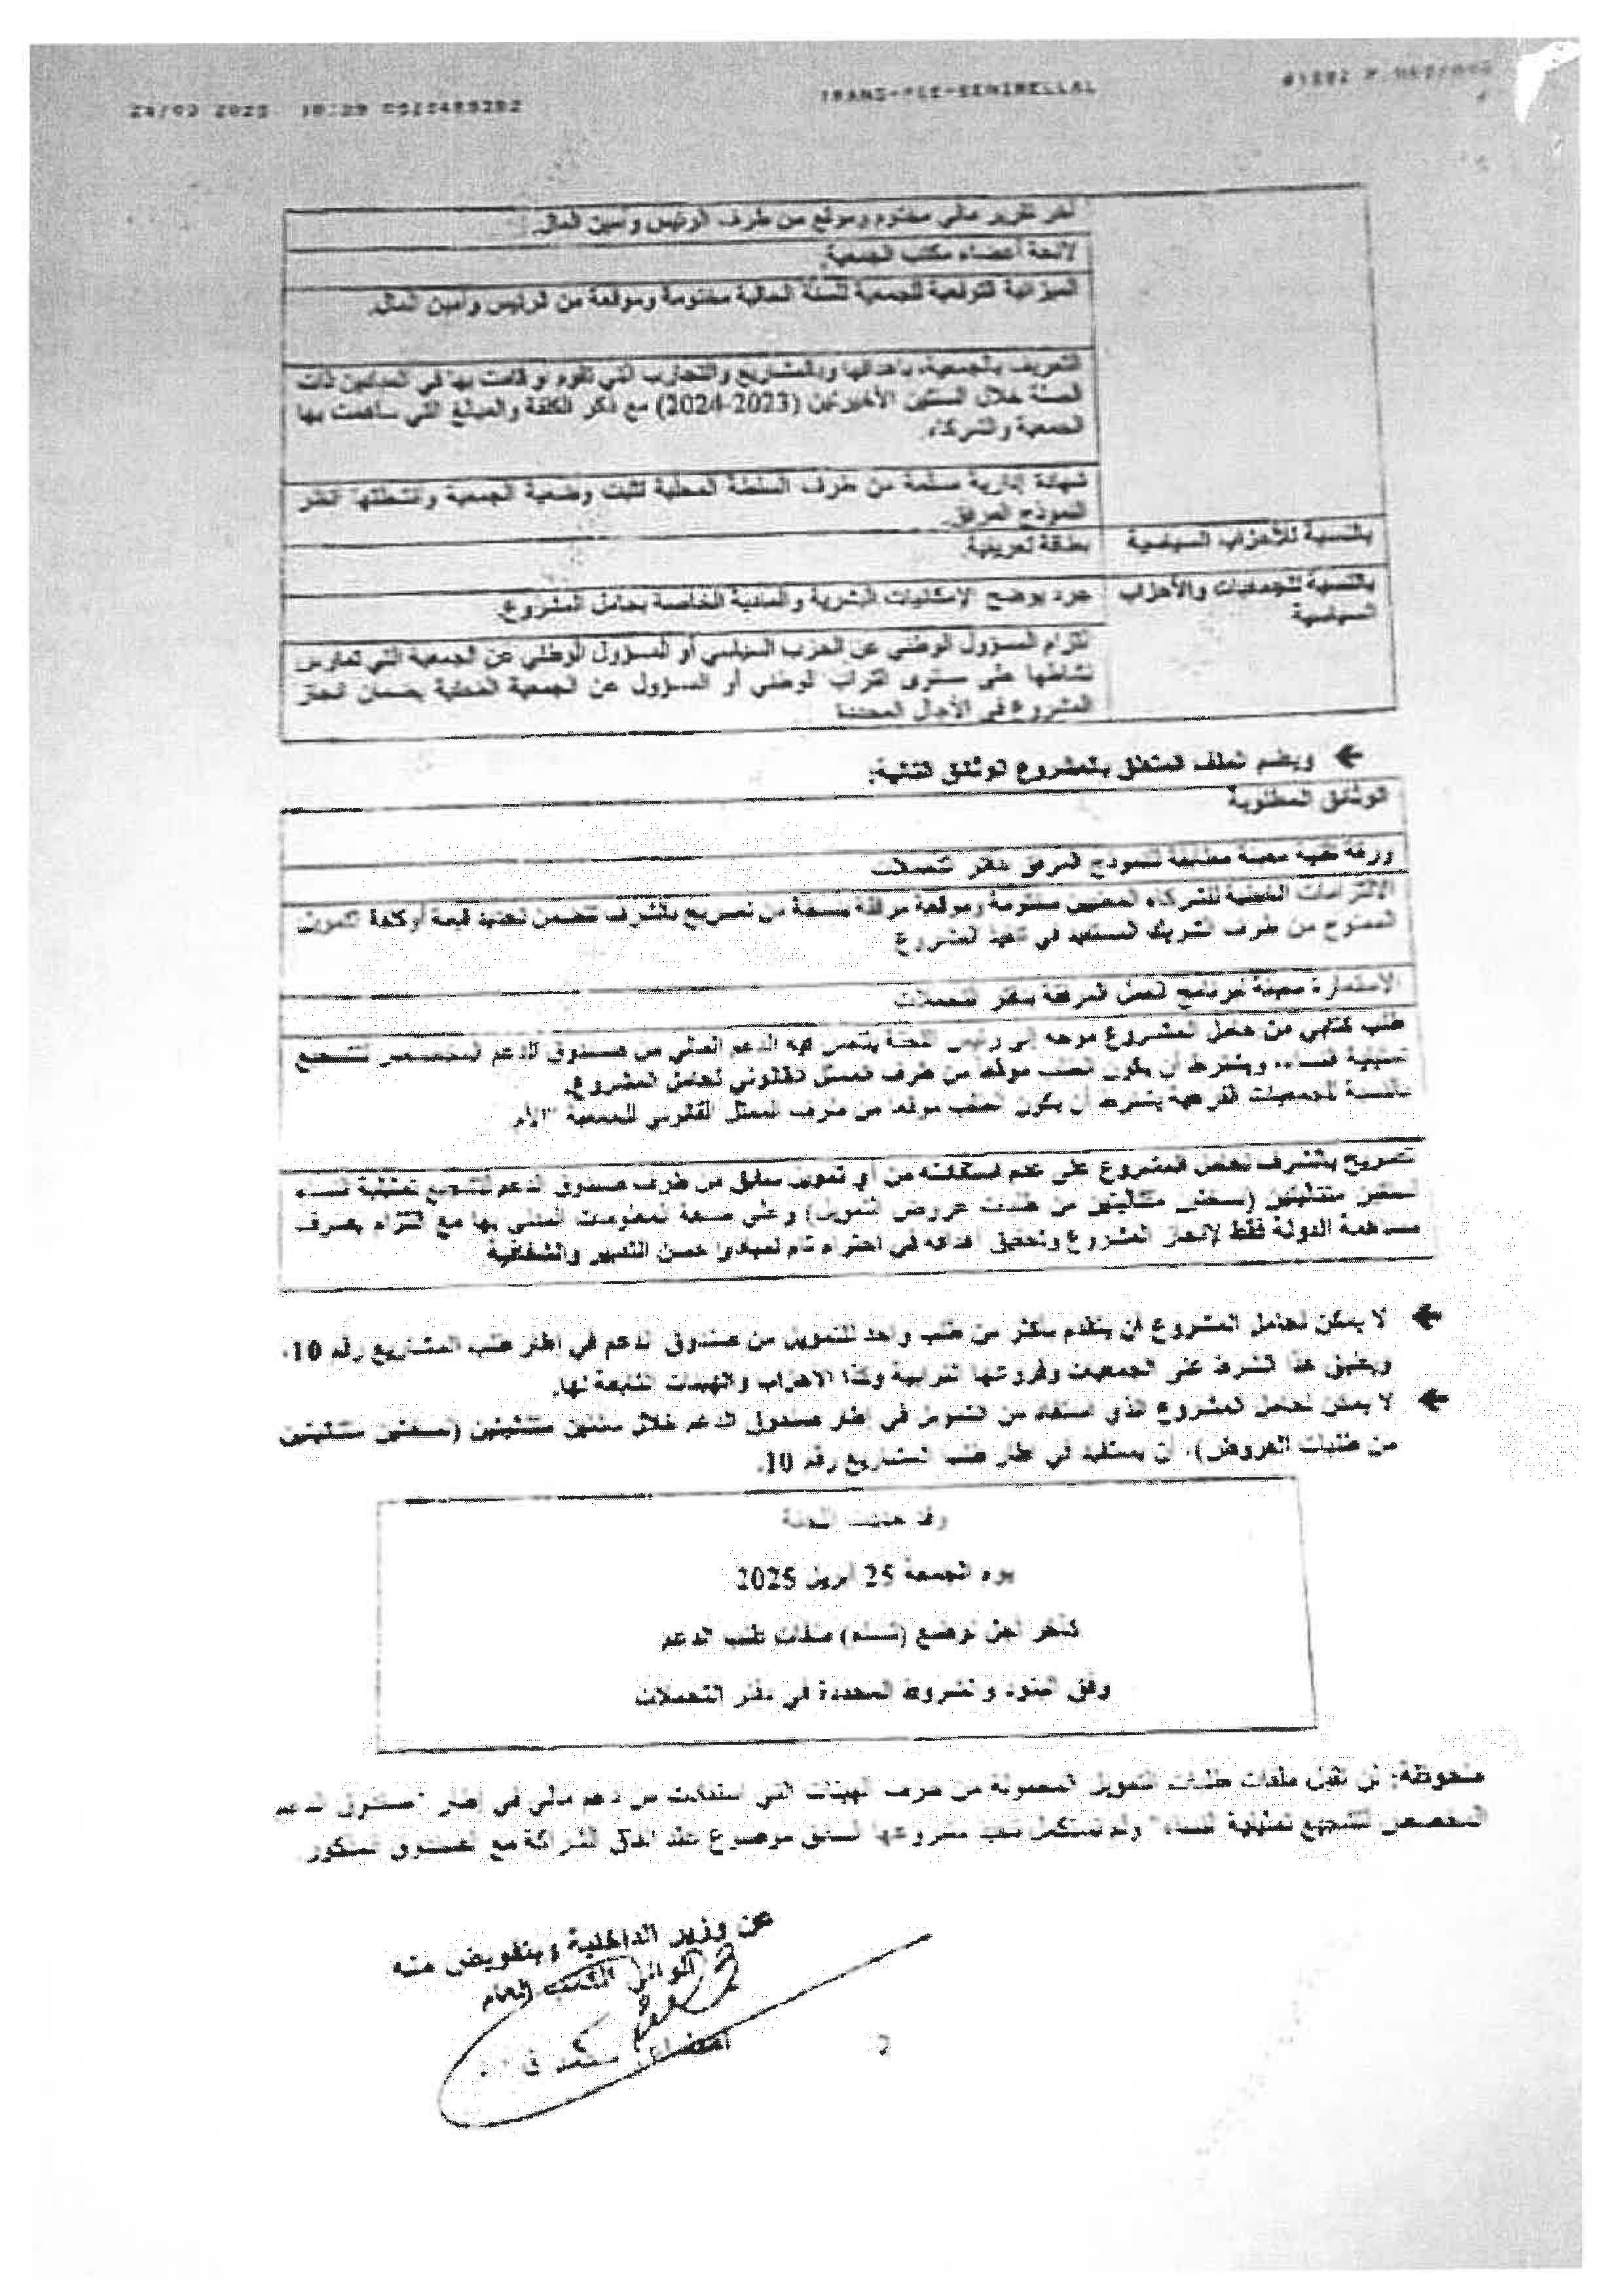 TRANS-PCE-BENIMELLAL
آخر تقرير مالي مختوم وموقع من طرف الرئيس وأمين المال.
لائحة أعضاء مكتب الجمعية.
الميزانية التوقعية للجمعية للسنة الحالية مختومة وموقعة من الرئيس وأمين المال.
التعريف بالجمعية، بأهدافها وبالمشاريع والتجارب التي تقوم أو قامت بها في الميادين ذات
الصلة خلال السنتين الأخيرتين (2023-2024) مع ذكر الكلفة والمبلغ التي ساهمت بها
الجمعية والشركاء.
شهادة إدارية مسلمة من طرف السلطة المحلية تثبت وضعية الجمعية وأنشطتها انظر
النموذج المرفق.
بالنسبة للأحزاب السياسية
بطاقة تعريفية
بالنسبة للجمعيات والأحزاب
السياسية
جرد يوضح الإمكانيات البشرية والمادية الخاصة بحامل المشروع.
التزام المسؤول الوطني عن الحزب السياسي أو المسؤول الوطني عن الجمعية التي تمارس
نشاطها على مستوى التراب الوطني أو المسؤول عن الجمعية المحلية بضمان انجاز
المشروع في الآجال المحددة
← ويضم الملف المتعلق بالمشروع الوثائق التالية:
الوثائق المطلوبة
ورقة تقنية معبئة مطابقة للنموذج المرفق بدفتر التحملات
الالتزامات الفعلية للشركاء المعنيين مختومة وموقعة مرفقة بنسخة من تصريح بالشرف تتضمن تحديد قيمة أو كلفة التمويل
الممنوح من طرف الشريك المساهم في تنفيذ المشروع
الاستمارة معبئة لبرنامج العمل المرفقة بدفتر التحملات
طلب كتابي من حامل المشروع موجه إلى رئيس اللجنة يلتمس فيه الدعم المالي من صندوق الدعم المخصص لتشجيع
تمثيلية النساء، ويشترط أن يكون الطلب موقعا من طرف الممثل القانوني لحامل المشروع.
بالنسبة للجمعيات الفرعية يشترط أن يكون الطلب موقعا من طرف الممثل القانوني للجمعية "الأم
تصريح بالشرف لحامل المشروع على عدم استفادته من أي تمويل سابق من طرف صندوق الدعم لتشجيع تمثيلية النساء
لسنتين متتاليتين (نسختين متتاليتين من طلبات عروض التمويل) وعلى صحة المعلومات المدلى بها مع التزام بصرف
مساهمة الدولة فقط لإنجاز المشروع وتحقيق أهدافه في احترام تام لمبادئ حسن التدبير والشفافية
← لا يمكن لحامل المشروع أن يتقدم بأكثر من طلب واحد للتمويل من صندوق الدعم في إطار طلب المشاريع رقم 10.
ويطبق هذا الشرط على الجمعيات وفروعها الترابية وكذا الأحزاب والهيئات التابعة لها.
← لا يمكن لحامل المشروع الذي استفاد من التمويل في إطار صندوق الدعم خلال سنتين متتاليتين (نسختين متتاليتين
من طلبات العروض)، أن يستفيد في إطار طلب المشاريع رقم 10.
وقد حددت اللجنة
يوم الجمعة 25 أبريل 2025
كآخر أجل لوضع (تسلم) ملفات طلب الدعم
وفق البنود والشروط المحددة في دفتر التحملات
ملحوظة: لن تقبل ملفات طلبات التمويل المحمولة من طرف الهيئات التي استفادت من دعم مالي في إطار "صندوق الدعم
المخصص لتشجيع تمثيلية النساء" ولم تستكمل بعد مشروعها السابق موضوع عقد اتفاق الشراكة مع الصندوق المذكور
عن وزير الداخلية وبتفويض منه
الوالي الكاتب العام
إمضاء:
2